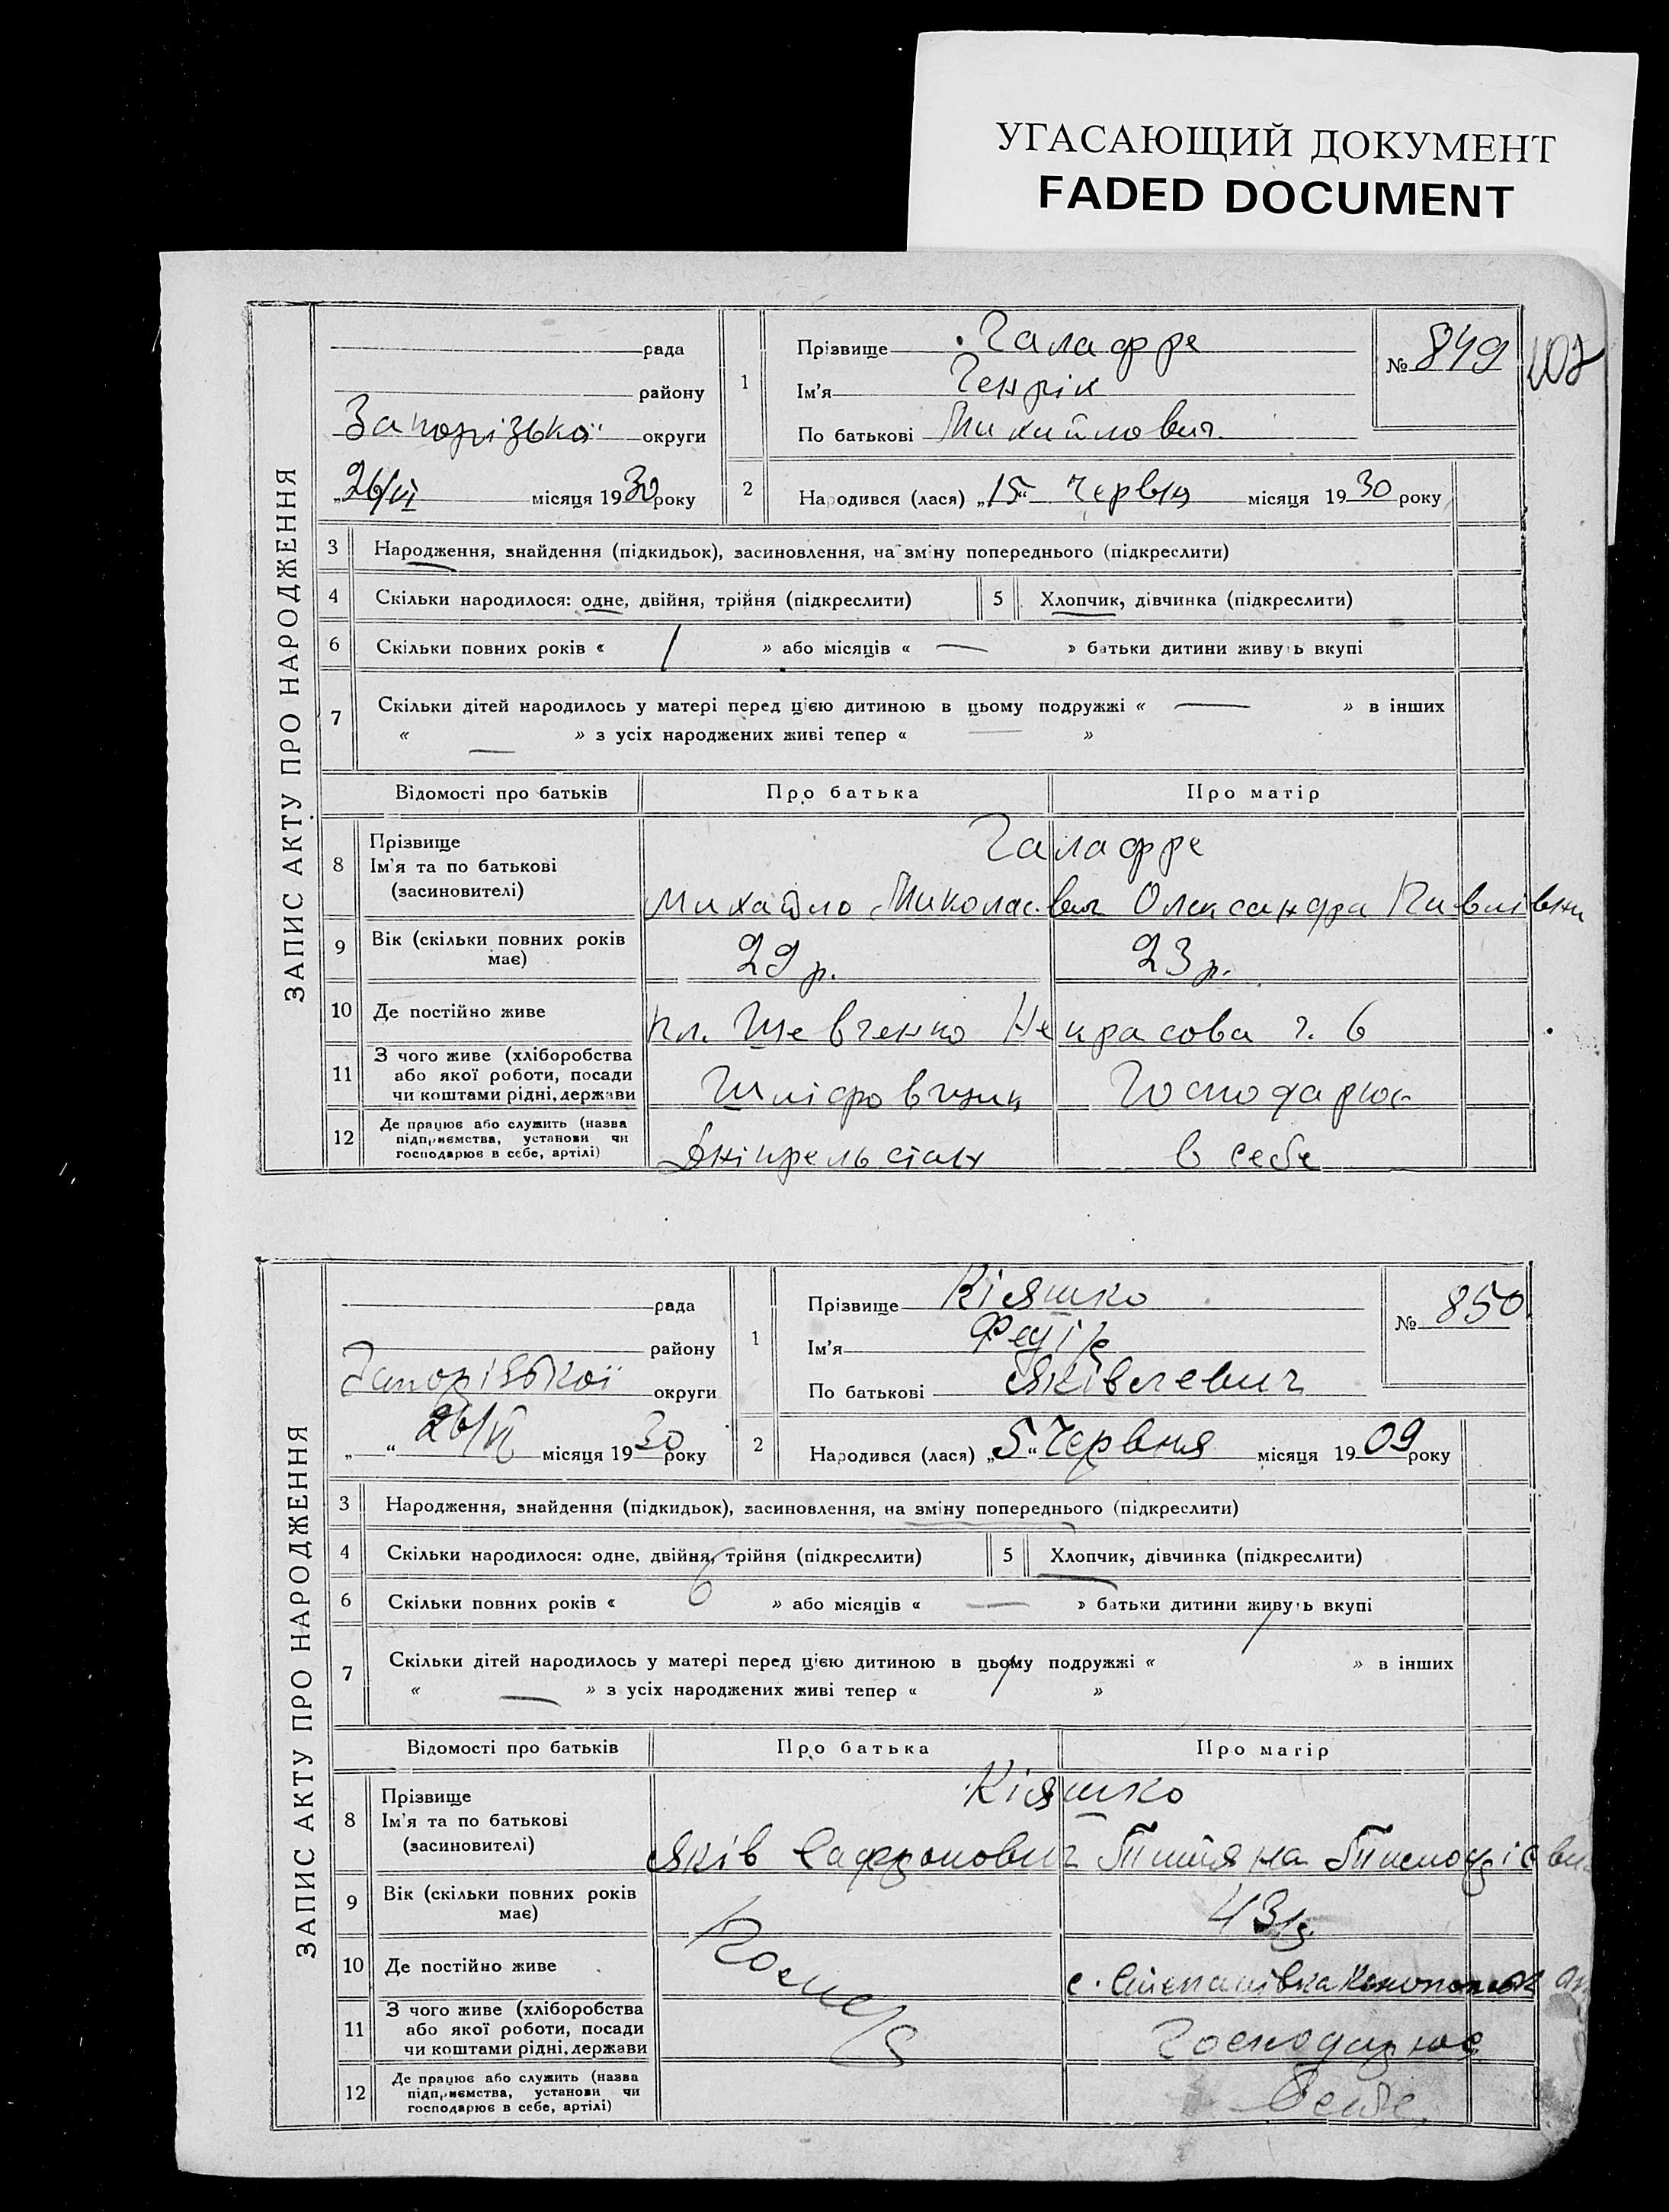 УГАСАЮЩИЙ ДОКУМЕНТ
FADED DOCUMENT
ЗАПИС АКТУ ПРО НАРОДЖЕННЯ
рада
району
Запорізької округи
„26/VI місяця 1930 року
1
Прізвище Галафре
Ім'я Генрік
По батькові Михайлович.
№ 849
107
2
Народився (лася) „15“ Червня місяця 1930 року
3 Народження, знайдення (підкидьок), засиновлення, на зміну попереднього (підкреслити)
4 Скільки народилося: одне, двійня, трійня (підкреслити) 5 Хлопчик, дівчинка (підкреслити)
6 Скільки повних років « 1 » або місяців « — » батьки дитини живуть вкупі
7 Скільки дітей народилось у матері перед цією дитиною в цьому подружжі « — » в інших
« — » з усіх народжених живі тепер « — »
Відомості про батьків Про батька Про матір
8 Прізвище
Ім'я та по батькові
(засиновителі)
Галафре
Михайло Миколаєвич Олександра Павлівна
9 Вік (скільки повних років має) 29 р. 23 р.
10 Де постійно живе пл. Шевченко Некрасова ч. 6
11 З чого живе (хліборобства
або якої роботи, посади
чи коштами рідні, держави
Шліфовщик Господарює
12 Де працює або служить (назва
підприємства, установи чи
господарює в себе, артілі)
Дніпрельстан в себе
ЗАПИС АКТУ ПРО НАРОДЖЕННЯ
рада
району
Запорізької округи
„ “ 26/VI місяця 1930 року
1
Прізвище Кіяшко
Ім'я Федір
По батькові Яківлевич
№ 850
2
Народився (лася) „5“ Червня місяця 1909 року
3 Народження, знайдення (підкидьок), засиновлення, на зміну попереднього (підкреслити)
4 Скільки народилося: одне, двійня, трійня (підкреслити) 5 Хлопчик, дівчинка (підкреслити)
6 Скільки повних років « 6 » або місяців « — » батьки дитини живуть вкупі
7 Скільки дітей народилось у матері перед цією дитиною в цьому подружжі « » в інших
« — » з усіх народжених живі тепер « »
Відомості про батьків Про батька Про матір
8 Прізвище
Ім'я та по батькові
(засиновителі)
Кіяшко
Яків Сафронович Титяна
9 Вік (скільки повних років має) 43 р.
10 Де постійно живе с. Степанівка
11 З чого живе (хліборобства
або якої роботи, посади
чи коштами рідні, держави
Господарює
12 Де працює або служить (назва
підприємства, установи чи
господарює в себе, артілі)
Себе